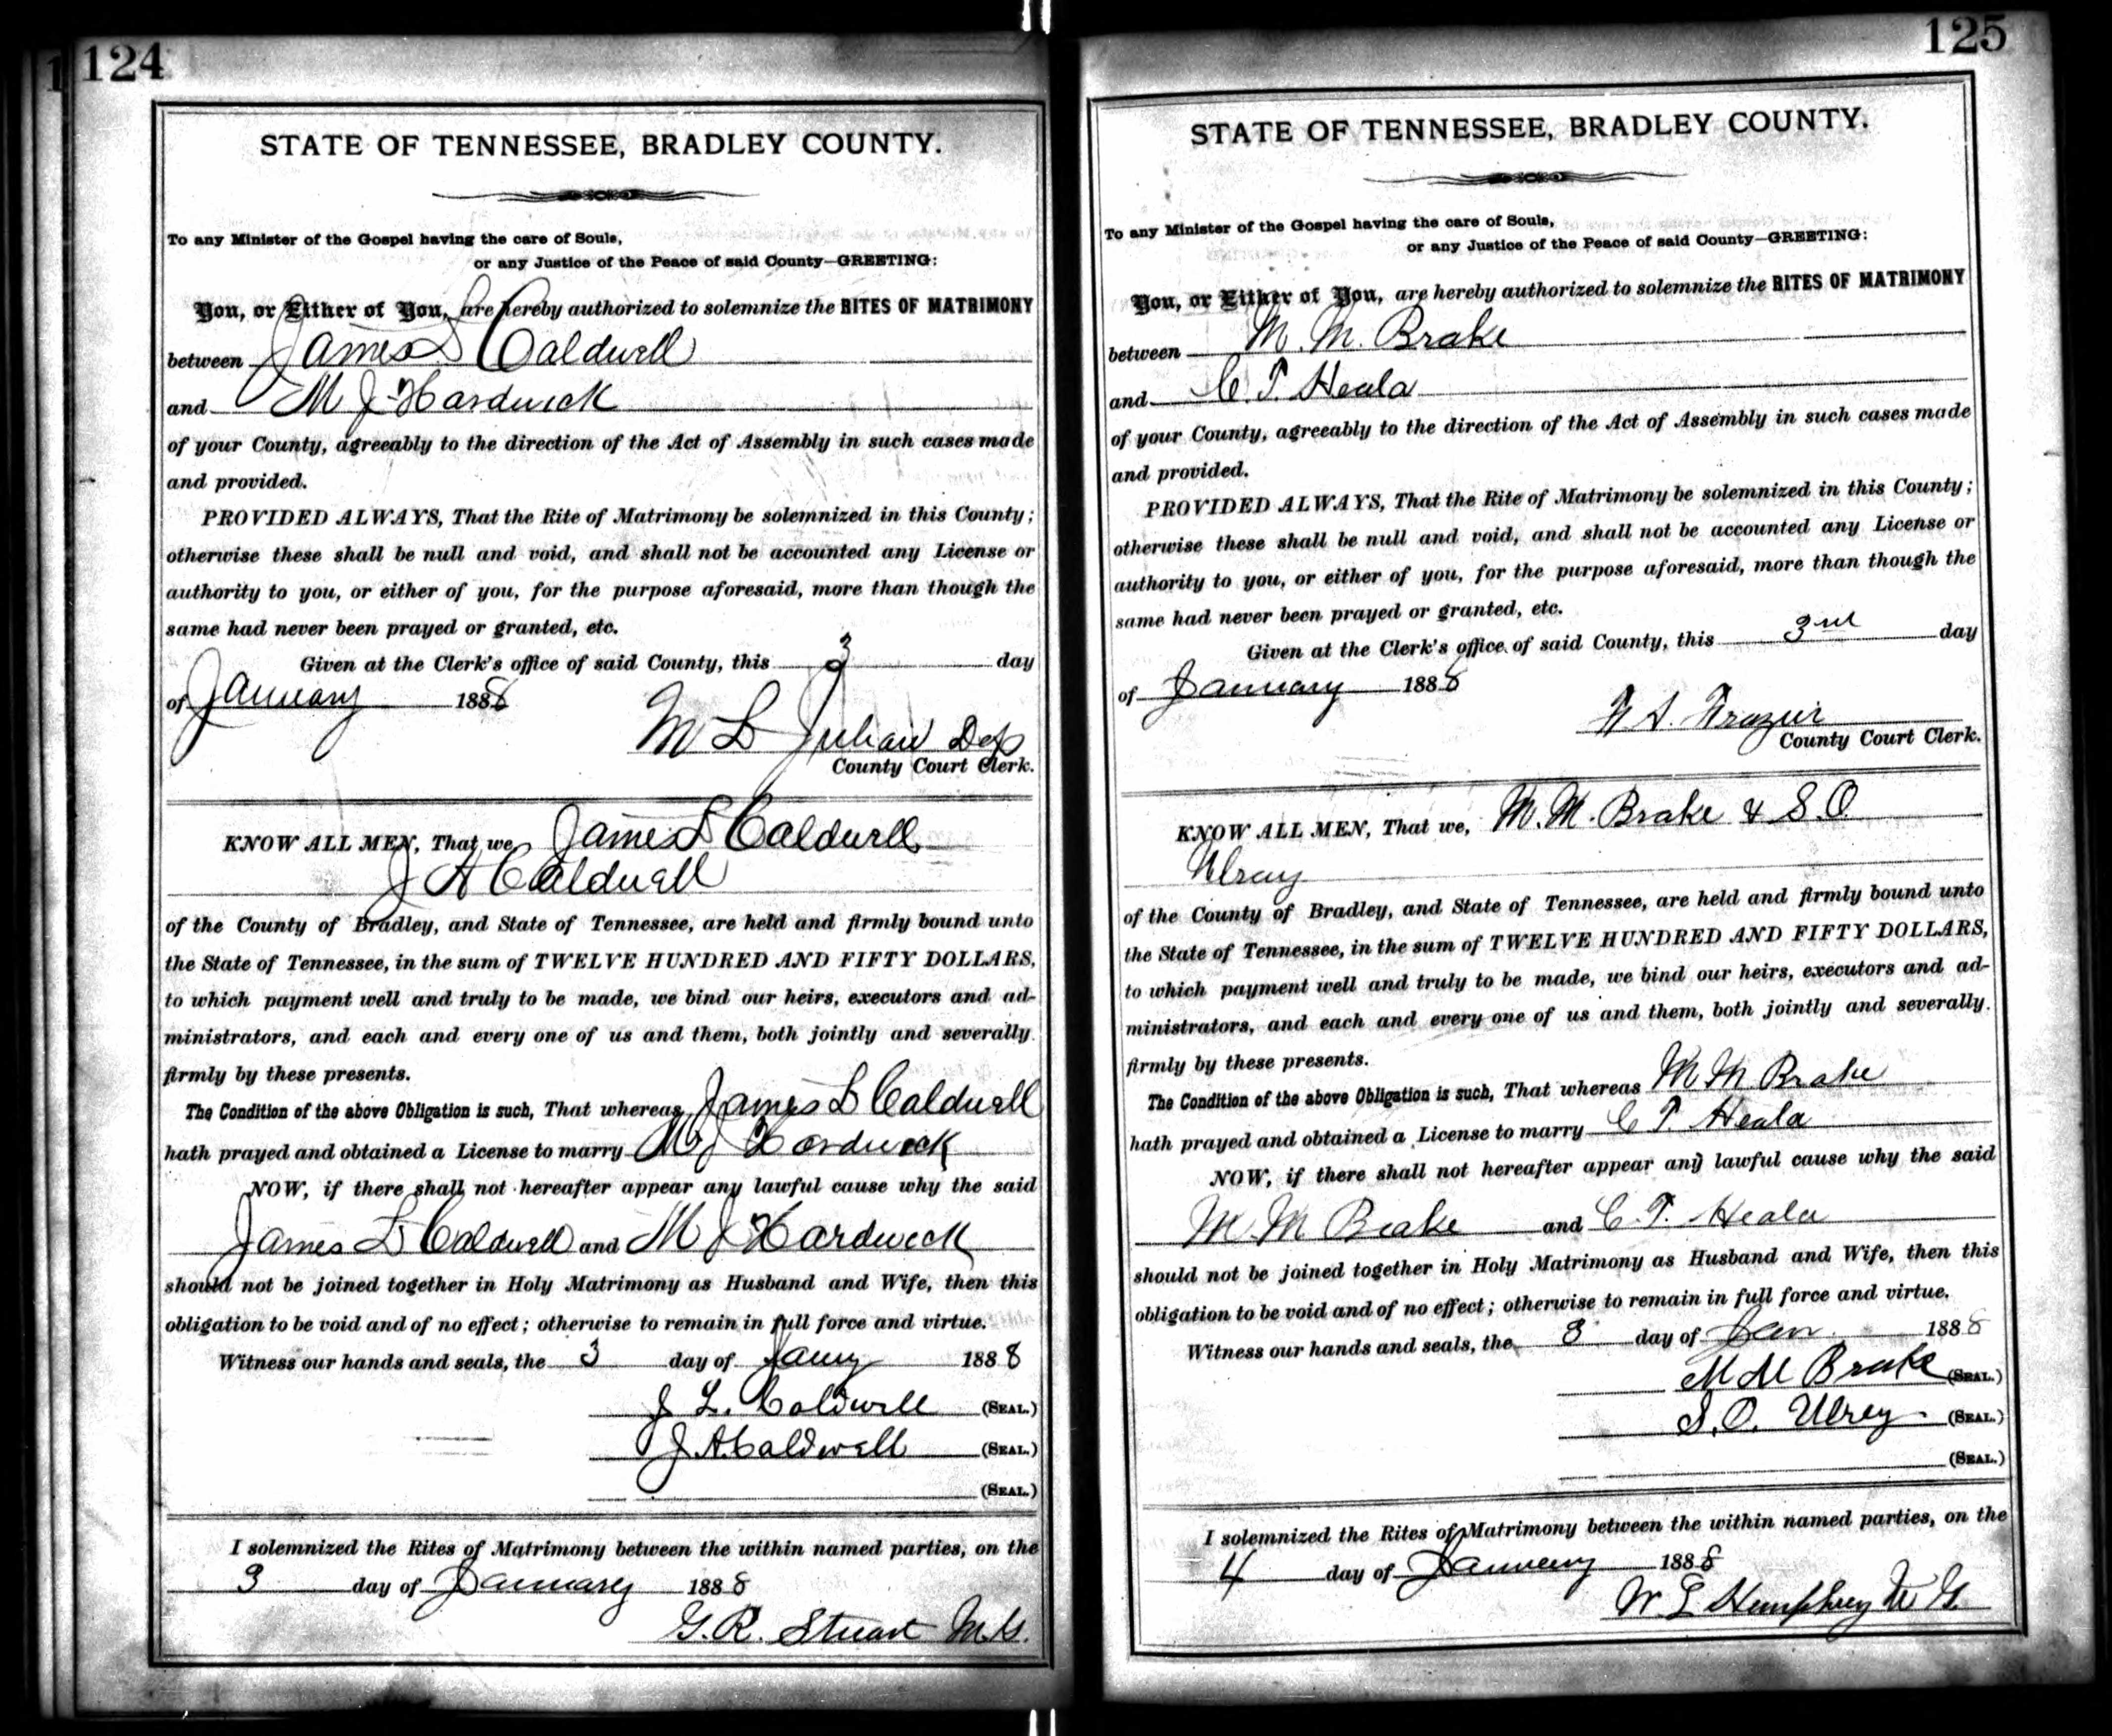 124
STATE OF TENNESSEE, BRADLEY COUNTY.
To any Minister of the Gospel having the care of Souls,
or any Justice of the Peace of said County—GREETING:
You, or Either of You, are hereby authorized to solemnize the RITES OF MATRIMONY
between James L Caldwell
and M J Hardwick
of your County, agreeably to the direction of the Act of Assembly in such cases made
and provided.
PROVIDED ALWAYS, That the Rite of Matrimony be solemnized in this County;
otherwise these shall be null and void, and shall not be accounted any License or
authority to you, or either of you, for the purpose aforesaid, more than though the
same had never been prayed or granted, etc.
Given at the Clerk's office of said County, this 3 day
of January 1888
M L Julian Dep
County Court Clerk.
KNOW ALL MEN, That we James L Caldwell
J A Caldwell
of the County of Bradley, and State of Tennessee, are held and firmly bound unto
the State of Tennessee, in the sum of TWELVE HUNDRED AND FIFTY DOLLARS,
to which payment well and truly to be made, we bind our heirs, executors and ad-
ministrators, and each and every one of us and them, both jointly and severally
firmly by these presents.
The Condition of the above Obligation is such, That whereas James L Caldwell
hath prayed and obtained a License to marry M J Hardwick
NOW, if there shall not hereafter appear any lawful cause why the said
James L Caldwell and M J Hardwick
should not be joined together in Holy Matrimony as Husband and Wife, then this
obligation to be void and of no effect; otherwise to remain in full force and virtue.
Witness our hands and seals, the 3 day of Jany 1888
J L. Caldwell (SEAL.)
J A. Caldwell (SEAL.)
(SEAL.)
I solemnized the Rites of Matrimony between the within named parties, on the
3 day of January 1888
G. R. Stuart M.G.
125
STATE OF TENNESSEE, BRADLEY COUNTY.
To any Minister of the Gospel having the care of Souls,
or any Justice of the Peace of said County—GREETING:
You, or Either of You, are hereby authorized to solemnize the RITES OF MATRIMONY
between M. M. Brake
and C. T. Heala
of your County, agreeably to the direction of the Act of Assembly in such cases made
and provided.
PROVIDED ALWAYS, That the Rite of Matrimony be solemnized in this County;
otherwise these shall be null and void, and shall not be accounted any License or
authority to you, or either of you, for the purpose aforesaid, more than though the
same had never been prayed or granted, etc.
Given at the Clerk's office of said County, this 3rd day
of January 1888
Frazier
County Court Clerk.
KNOW ALL MEN, That we, M. M. Brake & S. O.
Ulrey
of the County of Bradley, and State of Tennessee, are held and firmly bound unto
the State of Tennessee, in the sum of TWELVE HUNDRED AND FIFTY DOLLARS,
to which payment well and truly to be made, we bind our heirs, executors and ad-
ministrators, and each and every one of us and them, both jointly and severally.
firmly by these presents.
The Condition of the above Obligation is such, That whereas M M Brake
hath prayed and obtained a License to marry C T. Heala
NOW, if there shall not hereafter appear any lawful cause why the said
M. M Brake and C. T. Heala
should not be joined together in Holy Matrimony as Husband and Wife, then this
obligation to be void and of no effect; otherwise to remain in full force and virtue.
Witness our hands and seals, the 3 day of Jan 1888
M M Brake (SEAL.)
S. O. Ulrey (SEAL.)
(SEAL.)
I solemnized the Rites of Matrimony between the within named parties, on the
4 day of January 1888
W L Humphrey M G.